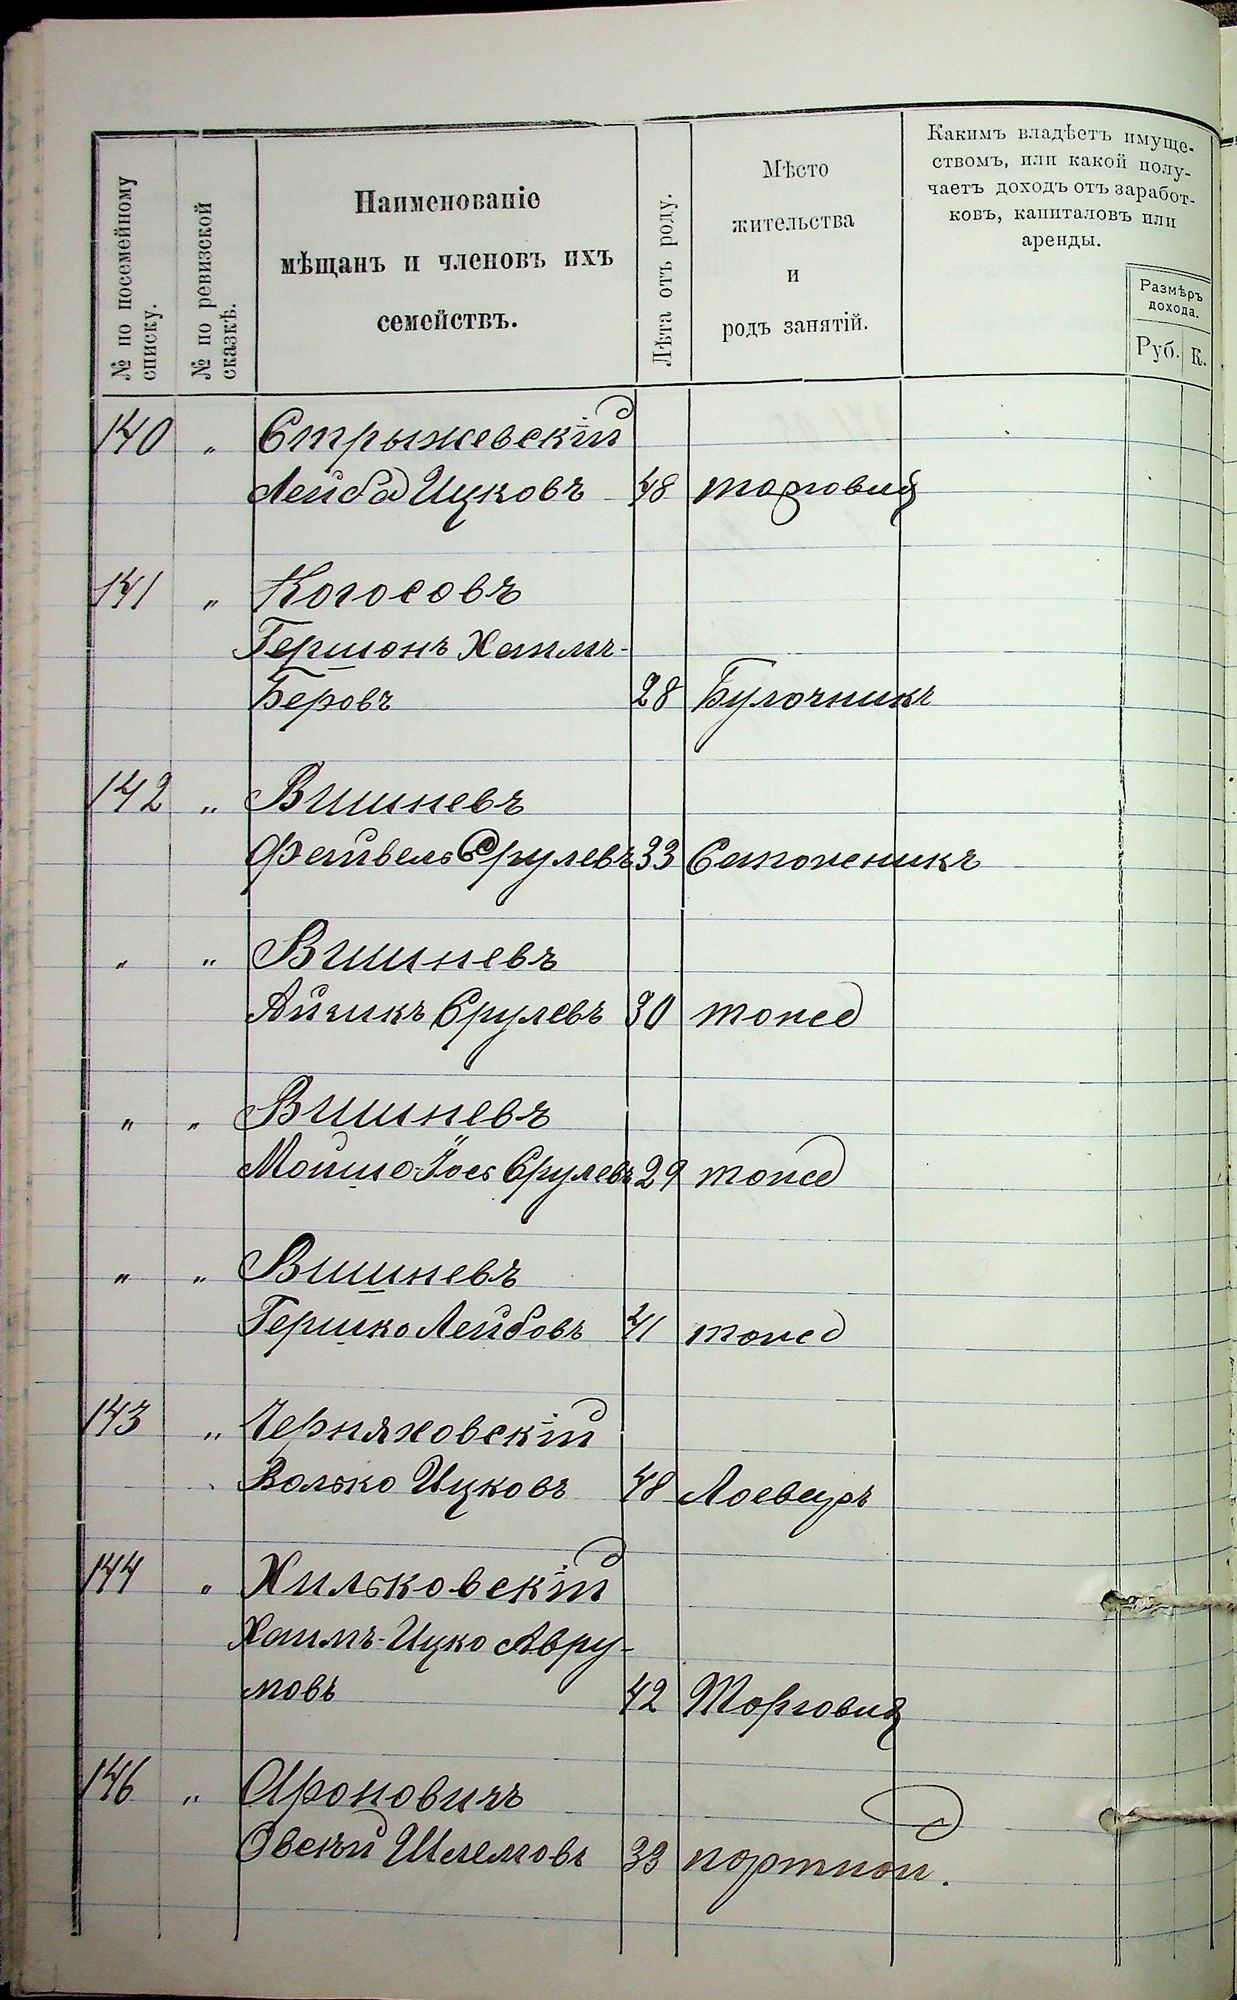 № по посемейному
списку.
№ по ревизской
сказкѣ.
Наименованіе
мѣщанъ и членовъ ихъ
семействъ.
Лѣта отъ роду.
Мѣсто
жительства
и
родъ занятій.
Какимъ владѣетъ имуще-
ствомъ, или какой полу-
чаетъ доходъ отъ заработ-
ковъ, капиталовъ или
аренды.
Размѣръ
дохода.
Руб. К.
140 „ Стрыжевскій
Лейба Ицковъ 48 торговля
141 „ Когосовъ
Гершонъ Хаимъ-
Беровъ 28 Булочникъ
142 „ Вишневъ
Файвель Срулевъ 33 Сапожникъ
„ „ Вишневъ
Айзикъ Срулевъ 30 тоже
„ „ Вишневъ
Мойше-Іось Срулевъ 29 тоже
„ „ Вишневъ
Гершко Лейбовъ 41 тоже
143 „ Черняховскій
Волько Ицковъ 48
144 „ Хильковскій
Хаимъ-Ицко Авру-
мовъ 42 Торговля
146 „ Ароновичъ
Овсѣй Шлемовъ 33 портной.